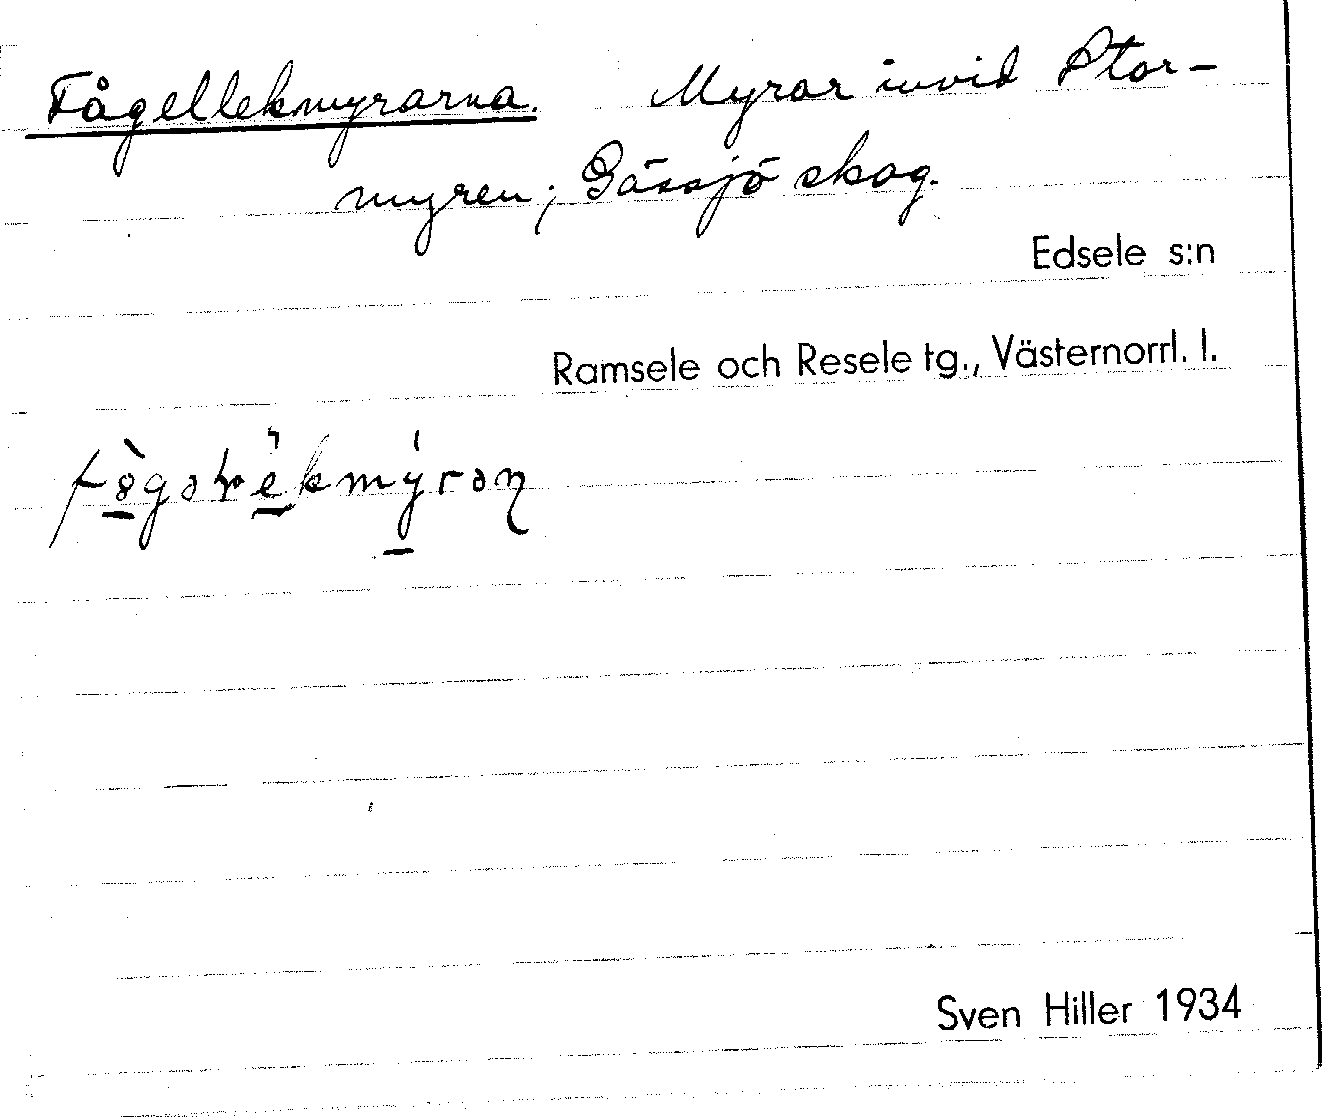 Fågellekmyrarna. Myrar invid Stor-
myren; Gåssjö skog.
Edsele s:n
Ramsele och Resele tg., Västernorrl. l.
Sven Hiller 1934